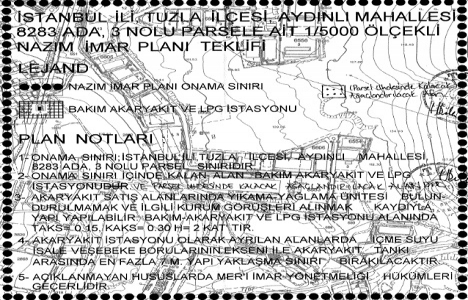 İSTANBUL İLİ, TUZLA İLÇESİ, AYDINLI MAHALLESİ
8283 ADA, 3 NOLU PARSELE AİT 1/5000 ÖLÇEKLİ
NAZIM İMAR PLANI TEKLİFİ
LEJAND
NAZIM İMAR PLANI ONAMA SINIRI
(Parsel ölçesinde Kalacak
Ağaçlandırılacak Alan
BAKIM AKARYAKIT VE LPG İSTASYONU
PLAN NOTLARI
1- ONAMA SINIRI; İSTANBUL İLİ, TUZLA İLÇESİ, AYDINLI MAHALLESİ,
8283 ADA, 3 NOLU PARSEL SINIRIDIR.
2- ONAMA SINIRI İÇİNDE KALAN ALAN BAKIM AKARYAKIT VE LPG
İSTASYONUDUR VE PARSEL KALACAK AĞAÇLANDIRILACAK ALAN
3- AKARYAKIT SATIŞ ALANLARINDA YIKAMA-YAĞLAMA ÜNİTESİ BULUN-
DURULMAMAK VE İLGİLİ KURUM GÖRÜŞLERİ ALINMAK KAYDIYLA,
YAPI YAPILABİLİR. BAKIM-AKARYAKIT VE LPG İSTASYONU ALANINDA
TAKS= 0.15, KAKS= 0.30 H= 2 KAT'TIR.
4- AKARYAKIT İSTASYONU OLARAK AYRILAN ALANLARDA İÇME SUYU
İSALE VE ŞEBEKE BORULARININ EKSENİ İLE AKARYAKIT TANKI
ARASINDA EN FAZLA 7 M. YAPI YAKLAŞMA SINIRI BIRAKILACAKTIR.
5- AÇIKLANMAYAN HUSUSLARDA MER'İ İMAR YÖNETMELİĞİ HÜKÜMLERİ
GEÇERLİDİR.